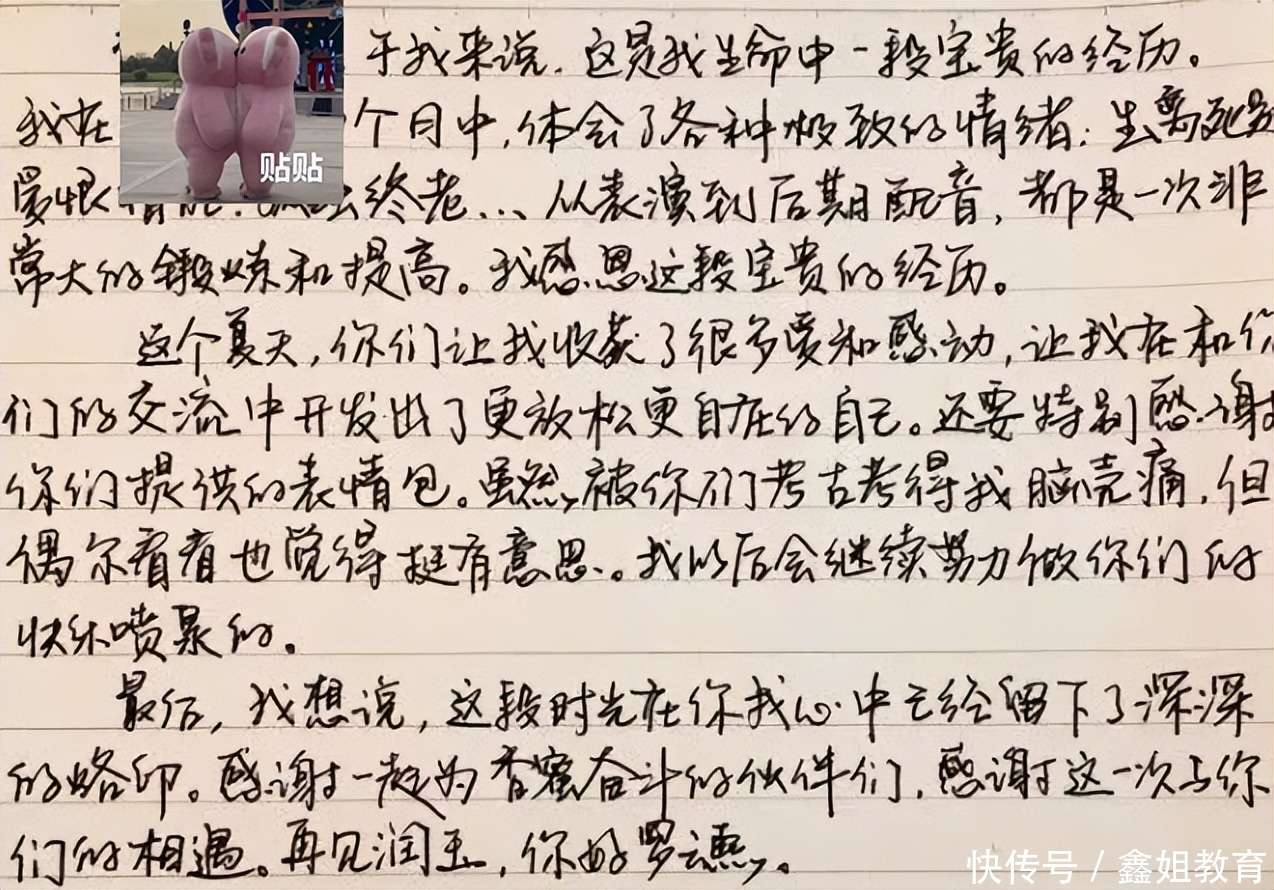 于我来说，这是我生命中一段宝贵的经历。
我在 个月中，体会了各种极致的情绪：生离死别
贴贴
爱恨 终老...从表演到后期配音，都是一次非
常大的锻炼和提高。我感恩这段宝贵的经历。
这个夏天，你们让我收获了很多爱和感动，让我在和你
们的交流中开发出了更放松更自在的自己。还要特别感谢
你们提供的表情包。虽然被你们考古考得我脑壳痛，但
偶尔看看也觉得挺有意思。我以后会继续努力做你们的
快乐喷泉的。
最后，我想说，这段时光在你我心中已经留下了深深
的烙印。感谢一起为香蜜奋斗的伙伴们，感谢这一次与你
们的相遇。再见润玉，你好罗云熙。
快传号 / 鑫姐教育